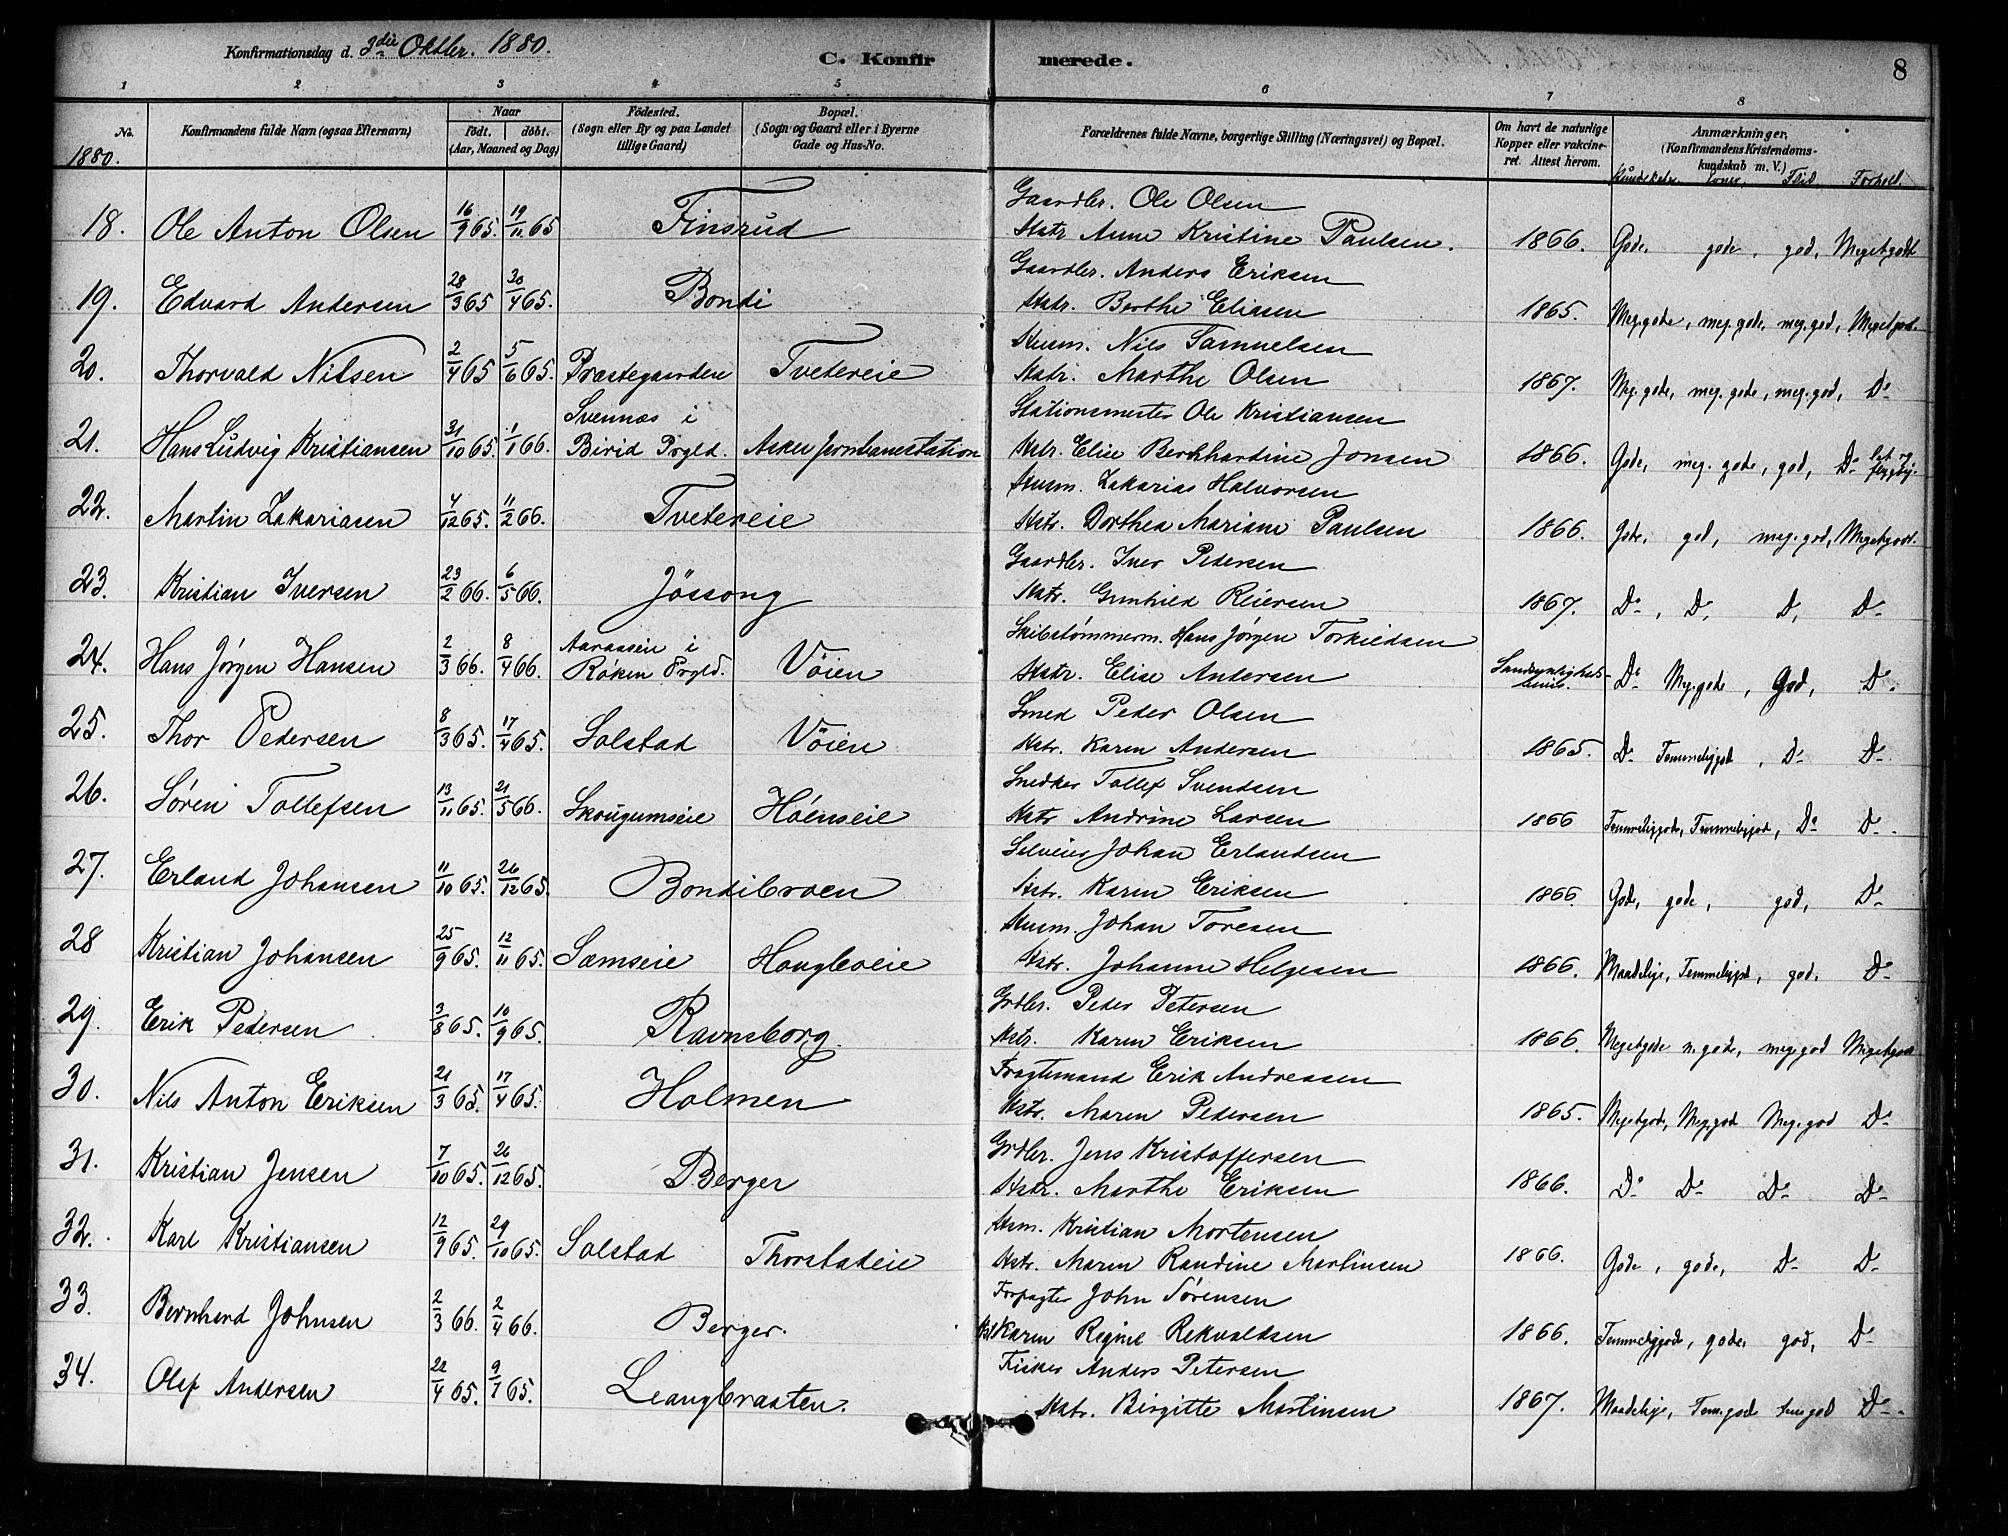 Konfirmationsdag d. 3die Oktbr. 1880. C. Konfirmerede. 8
1 2 3 4 5 6 7 8
No. Konfirmandens fulde Navn (ogsaa Efternavn) Naar Födt. döbt. (Aar, Maaned og Dag) Födested. (Sogn eller By og paa Landet tillige Gaard) Bopæl. (Sogn og Gaard eller i Byerne Gade og Hus-No. Forældrenes fulde Navne, borgerlige Stilling (Næringsvei) og Bopæl. Om havt de naturlige Kopper eller vakcineret. Attest herom. Anmærkninger. (Konfirmandens Kristendomskundskab m. V.)
1880. Kundskaber Evner, Flid Forhold.
Gaardbr. Ole Olsen
18. Ole Anton Olsen 16/9 65. 19/11 65 Finsrud Hstr Anne Kristine Paulsen. 1866. Gode, gode, god, Megetgodt
Gaardbr. Anders Eriksen
19. Edvard Andersen 28/3 65 30/4 65. Bondi Hstr. Berthe Eliasen 1865. Meg.gode, meg.gode, meg.god, Megetgodt.
Husm. Nils Samuelsen
20. Thorvald Nilsen 2/4 65 5/6 65. Præstegaarden Tvetereie Hstr. Marthe Olsen 1867. Meg.gode, meg.gode, meg.god, Do
Svennæs i Stationsmester Ole Kristiansen
21. Hans Ludvig Kristiansen 31/10 65. 1/1 66. Birid Prgld. Asker Jernbanestation Hstr. Elise Bernhardine Jonsen 1866. Gode, meg. gode, god, Do
Husm. Zakarias Halvorsen
22. Martin Zakariasen 4/12 65. 11/2 66. Tvetereie Hstr. Dorthea Mariane Paulsen 1866. gode, god, meg.god, Megetgodt.
Gaardbr. Iver Pedersen
23. Kristian Iversen 23/2 66. 6/5 66. Jössong Hstr. Gunhild Reiersen 1867. Do, Do, Do, Do
Aaraasen i Skibstømmerm. Hans Jørgen Torkildsen
24. Hans Jørgen Hansen 2/3 66. 8/4 66. Røken Prgld. Vöien Hstr. Elise Andersen Do Meg.gode, God, Do
Smed Peder Olsen
25. Thor Pedersen 8/3 65. 17/4 65. Solstad Vöien Hstr. Karen Andersen 1865. Do Temmeliggod, Do Do
Snedker Tollef Svendsen
26. Søren Tollefsen 13/11 65. 21/5 66. Skougumseie Höenseie Hstr Andrine Larsen 1866 Temmeliggode, Temmeliggod, Do Do
Selveier Johan Erlandsen
27. Erland Johansen 11/10 65. 26/12 65. Bondibroen Hstr. Karen Eriksen 1866. Gode, gode, god, Do
Husm. Johan Toresen
28 Kristian Johansen 25/9 65. 12/11 65. Sæmseie Hougbroeie Hstr. Johanne Helgesen 1866. Maadelige, Temmeliggod, god, Do
Grdbr. Peder Petersen
29. Erik Pedersen 3/8 65. 10/9 65. Ravnsborg. Hstr. Karen Eriksen 1866. Megetgode m.gode, meg.god Megetgodt
Fragtemand Erik Andreasen
30. Nils Anton Eriksen 21/3 65. 17/4 65. Holmen Hstr. Maren Pedersen 1865. Megetgode, Meg.god Meg.god Do
Grdbr. Jens Kristoffersen
31. Kristian Jensen 7/10 65. 26/12 65. Berger Hstr. Marthe Eriksen 1866. Do Do Do Do
Hsm. Kristian Mortensen
32. Karl Kristiansen 12/9 65. 29/10 65. Solstad Thorstadeie Hstr. Maren Randine Martinsen 1866. Gode, gode, Do Do
Forpagter John Sørensen
33. Bernhard Johnsen 2/3 66. 2/4 66. Berger. Karen Regine Rekvaldsen 1866. Temmeliggode, gode, god, Do
Fisker Anders Petersen
34. Olef Andersen 22/4 65. 9/7 65. Leangbraaten. Hstr. Birgitte Martinsen 1867. Maadelige, Tem.god temgod Do